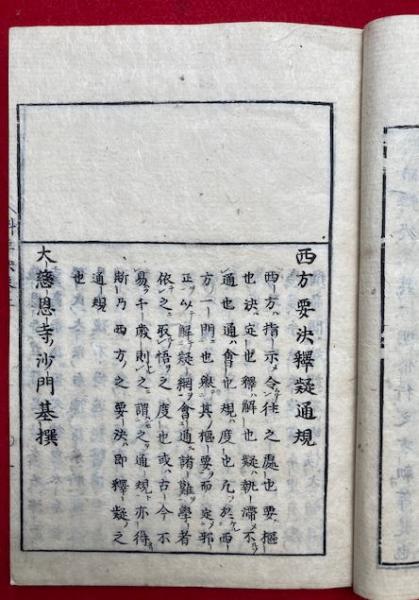 西方要決釋疑通規
西方指示令往之處也要樞
也決定也釋解也疑執滯不
通也通會也規度也凡於西
方一門也樞要而定邪
正以解疑網會通諸難學者
依之取悟之度也或古今不
易千歲則之謂之通規亦得
斯乃西方之要決即釋疑之
通規
也
大慈恩寺沙門基撰